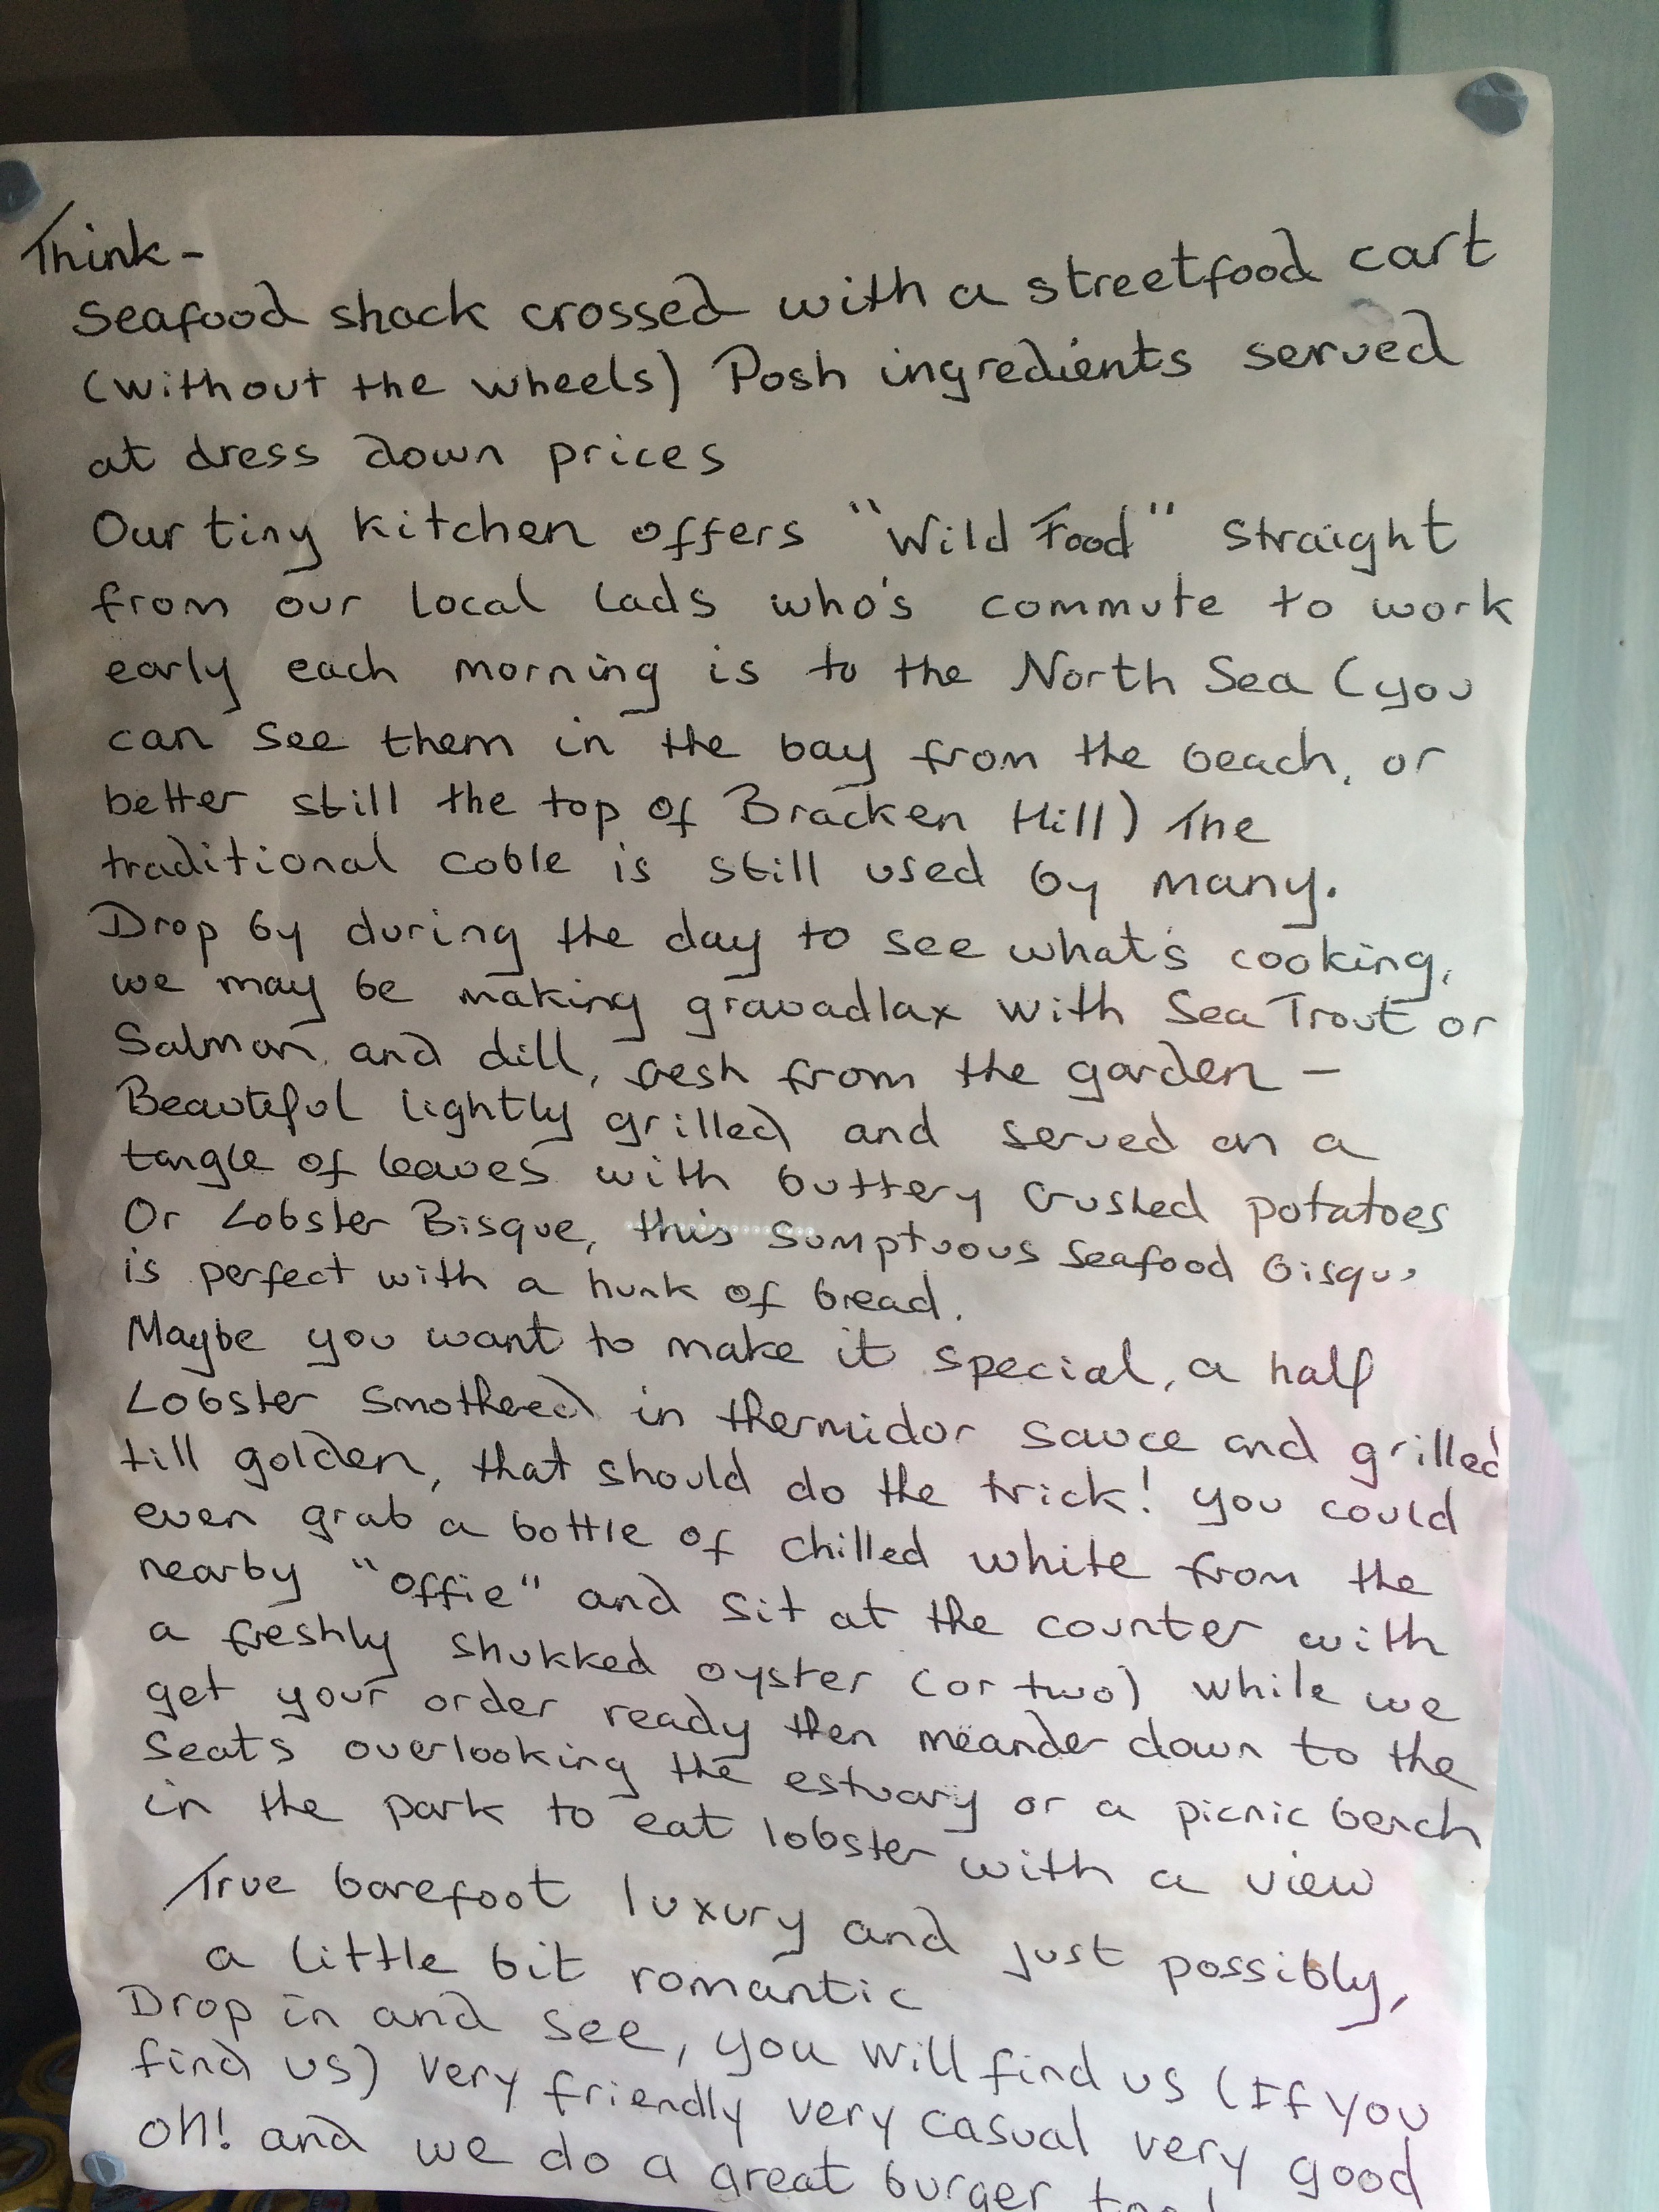 Think-
Seafood shack crossed with a streetfood cart
(without the wheels) Posh ingredients served
at dress down prices
Our tiny kitchen offers "Wild Food" straight
from our local lads who's commute to work
early each morning is to the North Sea (you
can see them in the bay from the beach, or
better still the top of Bracken Hill) The
traditional coble is still used by many.
Drop by during the day to see what's cooking,
we may be making gravadlax with Sea Trout or
Salmon and dill, fresh from the garden -
Beautiful lightly grilled and served on a
tangle of leaves with buttery crushed potatoes
Or Lobster Bisque, this sumptuous seafood
is perfect with a hunk of bread.
Maybe you want to make it special, a half
Lobster smothered in thermidor sauce and grilled
till golden, that should do the trick! you could
even grab a bottle of chilled white from the
nearby "offie" and sit at the counter with
a freshly shukked oyster (or two) while we
get your order ready then meander down to the
seats overlooking the estuary or a picnic bench
in the park to eat lobster with a view
True barefoot luxury and just possibly,
a little bit romantic
Drop in and see, you will find us (If you
find us) very friendly very casual very good
OH! and we do a great burger